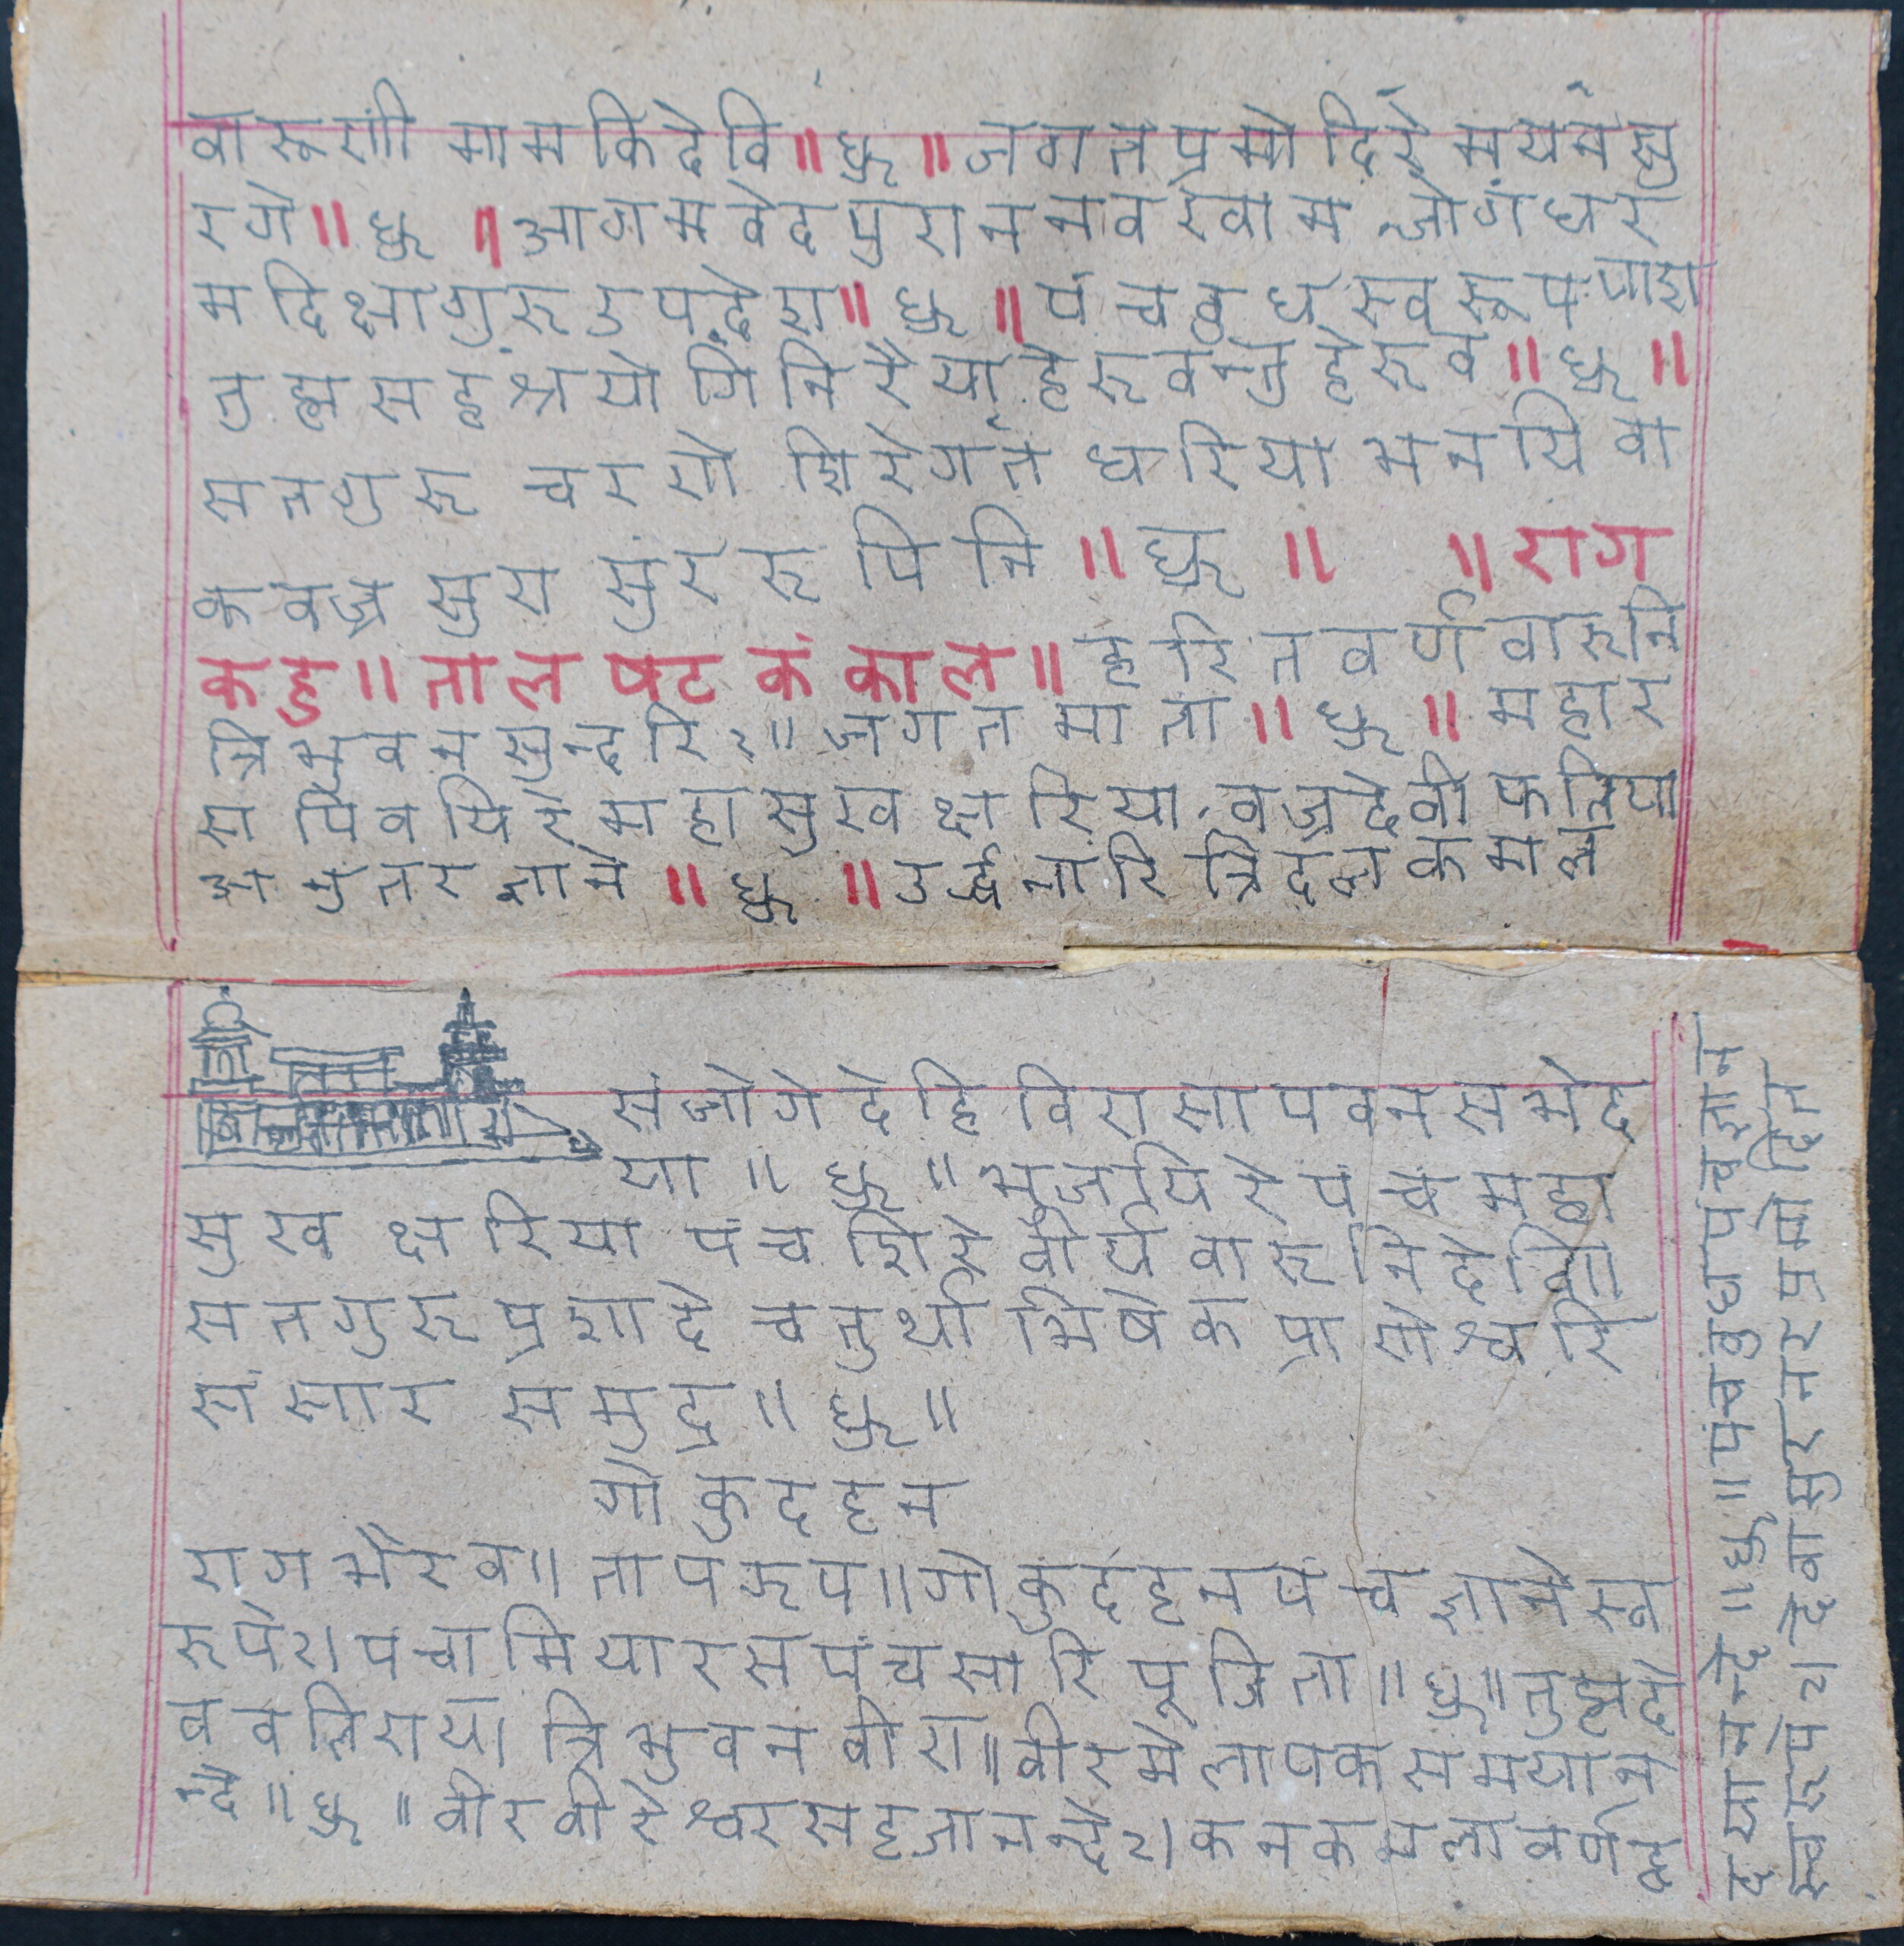 वारूणी मामकि देवि ॥ ध्रु ॥ जगत प्रमोदिरे मयमंसु
रगे ॥ ध्रु ॥ आगम वेद पुरान नव रेवाम जोगं धर
म दिक्षा गुरू उपदेश ॥ ध्रु ॥ पंच वुध स्वरूप पाश
तुह्म सहंश्र योगिनिरैया हेरूव न्तु हेरूव ॥ ध्रु ॥
सतगुरू चरणे शिरेगत धरिया भनयि वा
क वज्र सुरा सुंर रूपिनि ॥ ध्रु ॥ ॥ राग
कहु ॥ ताल षट कंकाल ॥ हरित वर्ण वारूनि
त्रिभुवन सुन्दरि २॥ जगत माता ॥ ध्रु ॥ महार
स पिवयिरे महासुख क्षरिया वज्रदेवी फलिया
अनुतर ज्ञाने ॥ ध्रु ॥ उर्द्ध नारि त्रिदल कमल
संजोगे देहि विरासा पवन सभेद
या ॥ ध्रु ॥ भुजयिरे पंच महा
सुख क्षरिया पंच शिरे वीर्य वारूनि देवि
सतगुरू प्रशादे चतुर्थाभिषेक प्रानेश्वरि
संसार समुद्र ॥ ध्रु ॥
गोकुदहन
राग भैरव ॥ ताप रूप ॥ गोकुदहन पंच ज्ञाने स्व
रूपे २। पंचामियारस पंच सारि पूजिता ॥ ध्रु ॥ तुह्म दे
व वलिराया त्रिभुवन वीरा ॥ वीर मेलापक समयान
न्दे ॥ ध्रु ॥ वीर वीरेश्वर सहजानन्दे २। कनक मला वर्ण ह
दयानन्दे ॥ ध्रु ॥ पंचवुधा पंचज्ञाने
स्वरूपे २। देवासुर नर प्रमोदित